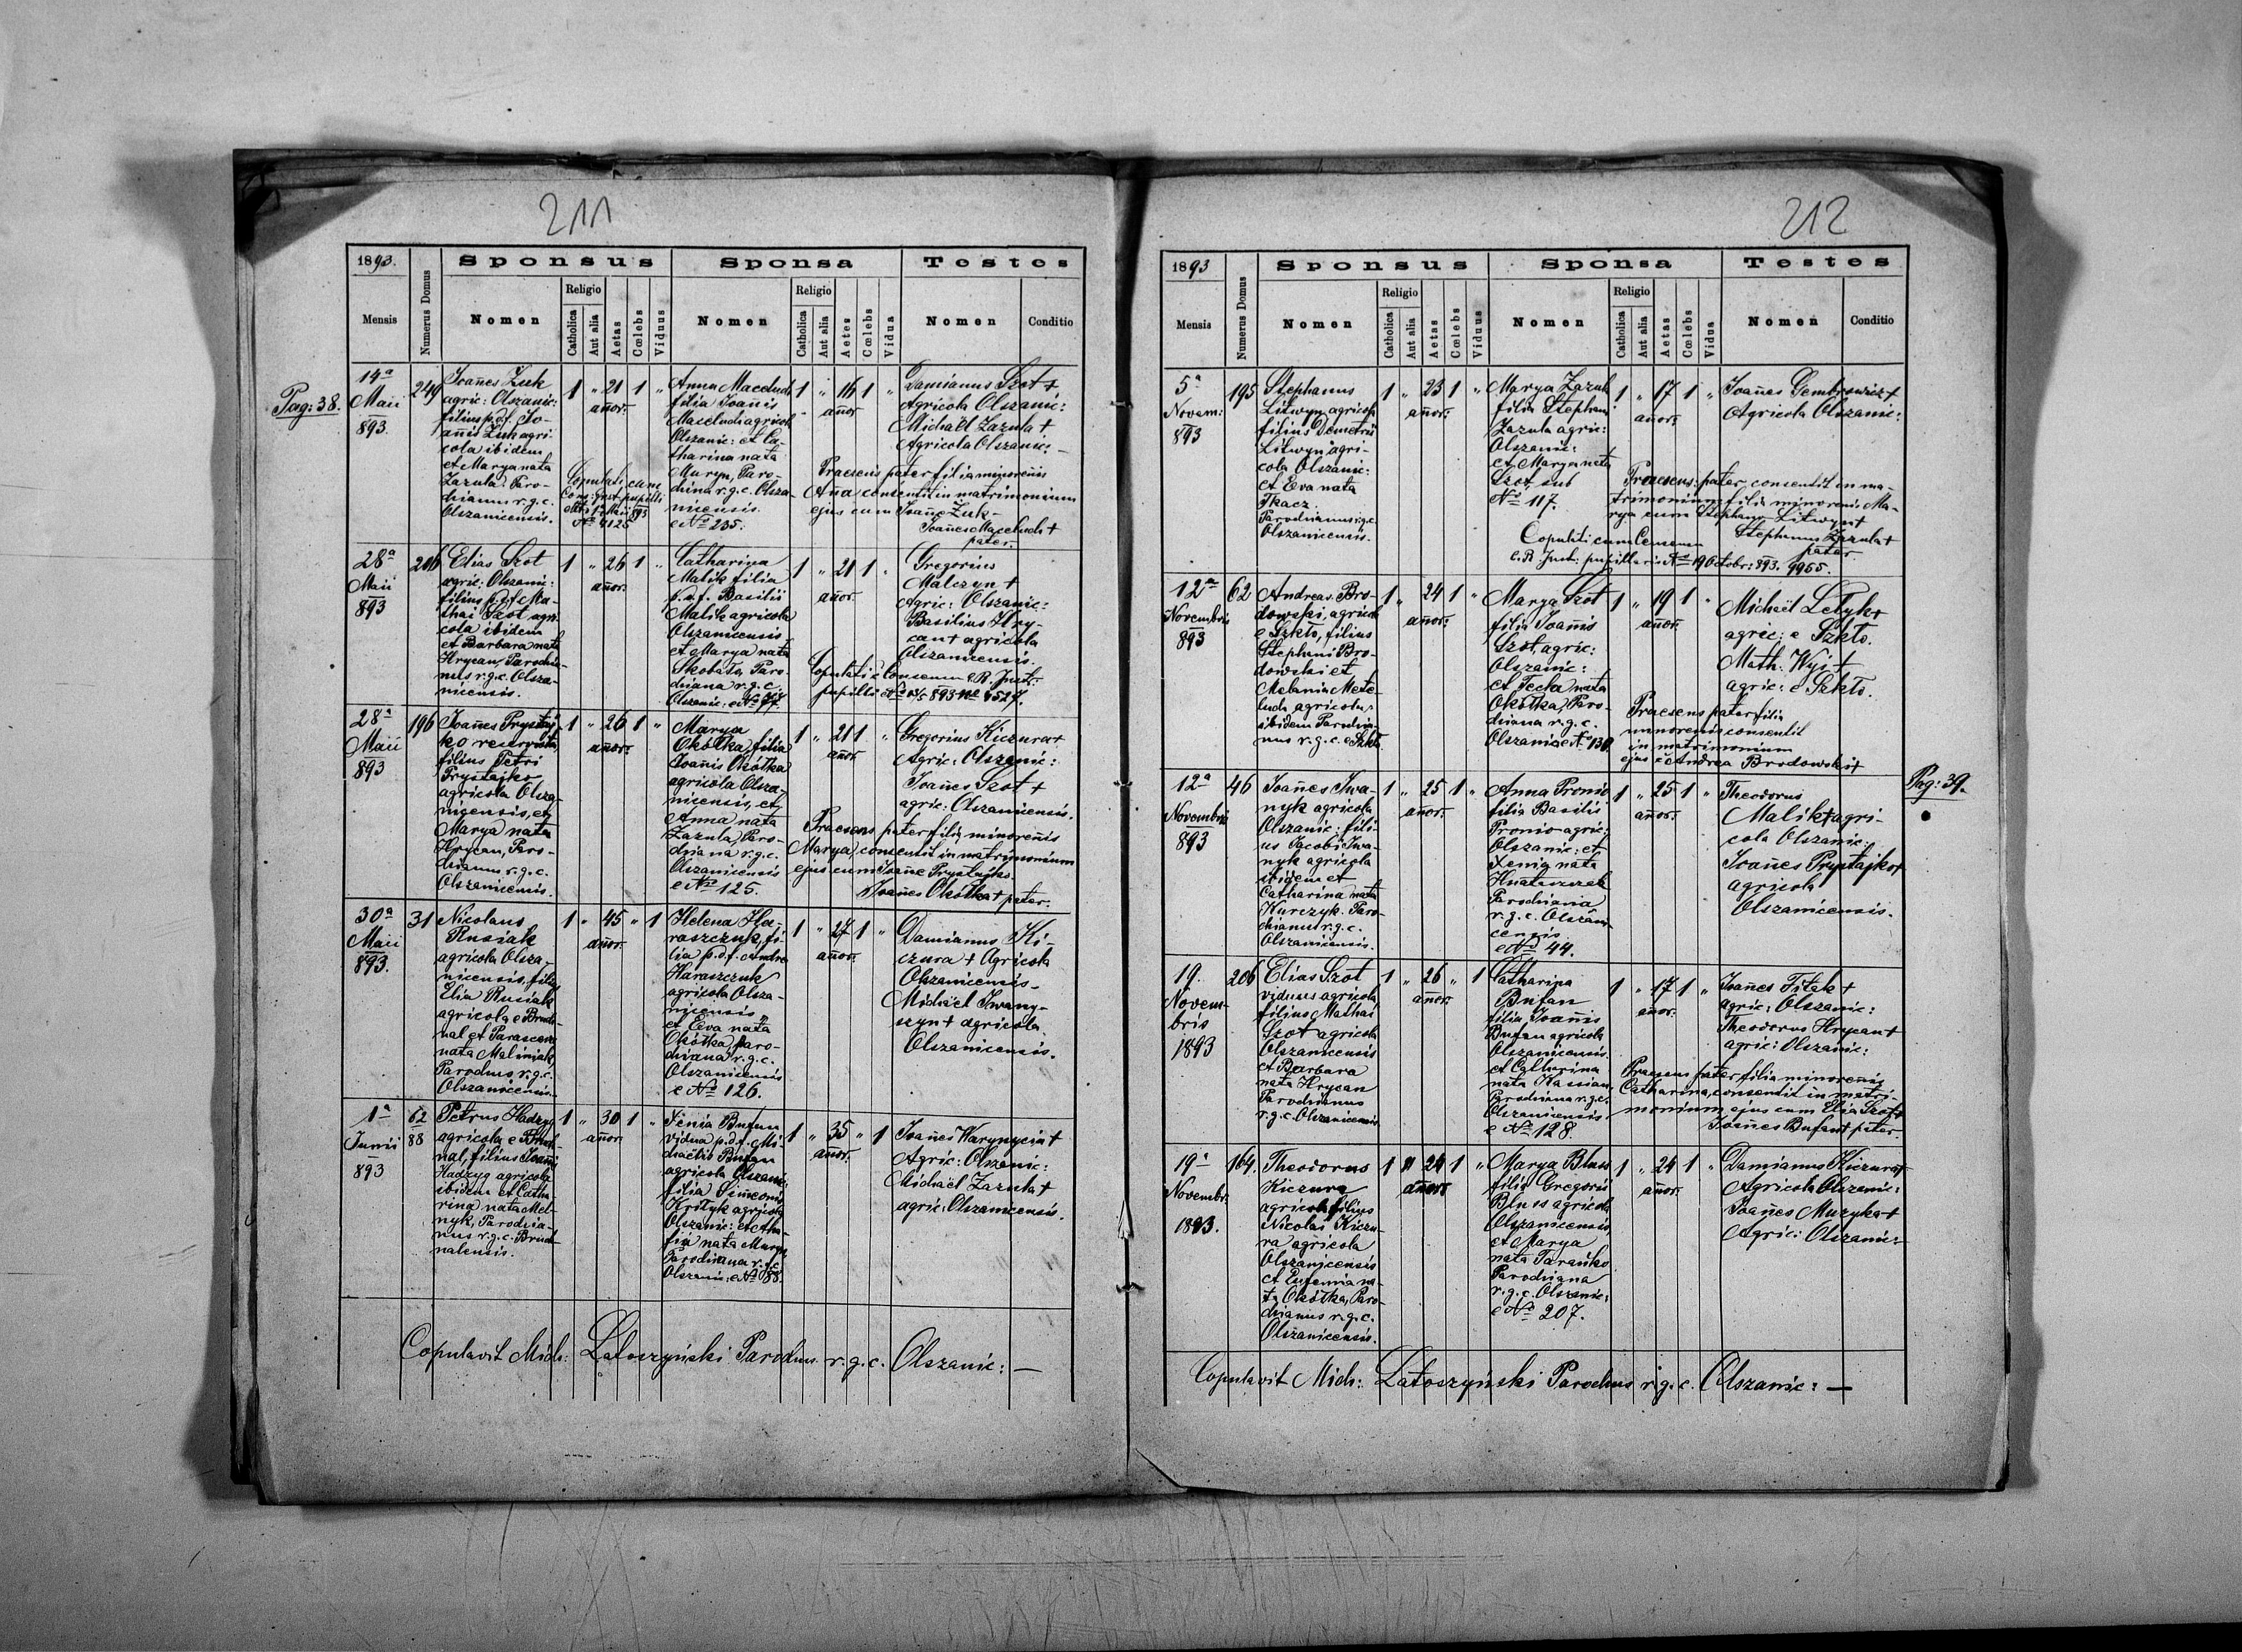 211
1893.
Sponsus
Sponsa
Testes
Mensis
Numerus Domus
Nomen
Religio
Catholica
Aut alia
Aetas
Cœlebs
Viduus
Nomen
Religio
Catholica
Aut alia
Aetes
Cœlebs
Vidua
Nomen
Conditio
Pag: 38.
14a
Maii
893.
249
Joañes Zuk
agric: Olszanic:
filius p.d.f. Jo-
añis Zuk agri
cola ibidem
et Marya nata
Zazula. Paro-
chianus r.g.c.
Olszanicensis.
1 " 21 1 "
añor.
Copulati cum
Anna Maceluch
filia Joañis
Maceluch agricola
Olszanic: et Ca-
tharina nata
Muryn, Paro-
chiana r.g.c. Olsza-
nicensis.
e No 235.
1 " 16 1 "
añor
Damianus Szot +
Agricola Olszanic:
Michael Zazula +
Agricola Olszanic: -
Praesens pater filia minorenis
Aña consentit in matrimonium
ejus cum Joañe Zuk -
Joañes Maceluch +
pater.
28a
Maii
893
206
Elias Szot
agric: Olszanic:
filius p.d.f. Ma-
thai Szot agri
cola ibidem
et Barbara nata
Hrycan, Parochia-
nus r.g.c. Olsza-
nicensis.
1 " 26 1 "
añor.
Catharina
Malik filia
p.d.f. Basilii
Malik agricola
Olszanicensis
et Marya nata
Skobała, Paro-
chiana r.g.c.
Olszanic: e No 77.
1 " 21 1 "
añor.
Gregorius
Malczyn +
Agric: Olszanic:
Basilius Hry-
can + agricola
Olszanicensis.
28a
Maii
893
196
Joañes Prystaj
ko reservista,
filius Petri
Prystajko
agricola Olsza-
nicensis, et
Marya nata
Hrycan, Paro-
chianus r.g.c.
Olszanicensis.
1 " 26 1 "
añor.
Marya
Okółka, filia
Joañis Okółka
agricola Olsza-
nicensis, et
Anna nata
Zazula, Paro-
chiana r.g.c.
Olszanicensis
e No 125.
1 " 21 1 "
añor
Gregorius Kiczura +
Agric: Olszanic:
Joañes Szot +
agric: Olszanicensis.
Praesens pater filia minorenis
Marya, consentit in matrimonium
ejus cum Joañe Prystajko.
Joañes Okółka + pater.
30a
Maii
893.
31
Nicolaus
Rusiak
agricola Olsza-
nicensis, filius
Elia Rusiak
agricola e Bruch-
nal et Parascena
nata Maliniak
Parochus r.g.c.
Olszanicensis.
1 " 45 " 1
añor.
Helena Ha-
raszczuk, fi-
lia p.d.f. Andre
Haraszczuk
agricola Olsza-
nicensis
et Eva nata
Okółka, paro-
chiana r.g.c.
Olszanicensis
e No 126.
1 " 27 1 "
añor.
Damianus Ki-
czura + Agricola
Olszanicensis -
Michael Iwany-
szyn + agricola
Olszanicensis.
1a
Junii
893
62
88
Petrus Hadzyg
agricola e Bruch-
nal, filius Joañis
Hadzyg agricola
ibidem et Catha
rina nata Mel-
nyk, Parochia-
nus r.g.c. Bruch-
nalensis.
1 " 30 1 "
añor.
Xenia Bufan
vidua p.d.f. Mi-
chaelis Bufan
agricola Olszanic:
filia Simeonis
Krótyk agricola
Olszanic:
Parochiana r.g.c.
Olszanic: e No 88.
1 " 35 " 1
añor.
Joañes Warynycia +
Agric: Olszanic:
Michael Zazula +
agric: Olszanicensis.
Copulavit Mich: Latoszyński Parochus r.g.c. Olszanic: —
212
1893
Sponsus
Sponsa
Testes
Mensis
Numerus Domus
Nomen
Religio
Catholica
Aut alia
Aetas
Cœlebs
Viduus
Nomen
Religio
Catholica
Aut alia
Aetas
Cœlebs
Vidua
Nomen
Conditio
5a
Novem:
893
195
Stephanus
Litwyn, agricola
filius Demetrii
Litwyn agri-
cola Olszanic:
et Eva nata
Tkacz.
Parochianus r.g.c.
Olszanicensis.
1 " 23 1 "
añor.
Marya Zazula
filia Stephani
Zazula agric:
Olszanic:
et Marya nata
Szot, sub
No 117.
1 " 17 1 "
añor.
Joañes Gembrowicz +
Agricola Olszanic:
Praesens pater, consentit in ma-
trimonium filia minorenis Ma-
rya cum Stephano Litwyn +
Stephanus Zazula +
pater
Copulati cum Consensu
12a
Novembris
893
62
Andreas Bro-
dowski, agricola
e Szkło, filius
Stephani Bro-
dowski et
Melania Mete-
luch agricola
ibidem Parochia-
nus r.g.c. e Szkło
1 " 24 1 "
añor.
Marya Szot
filia Joañis
Szot, agric:
Olszanic:
et Tecla nata
Okółka, Paro-
chiana r.g.c.
Olszanic e No 130.
1 " 19 1 "
añor.
Michaël Letyk +
agric: e Szkło.
Math. Wyj +
agric: e Szkło.
Praesens pater filia
minorenis consentit
in matrimonium
ejus c Andrea Brodowski +
12a
Novembris
893
46
Joañes Iwa-
nyk agricola
Olszanic: fili-
us Jacobi Iwa-
nyk agricola
ibidem et
Catharina nata
Kurczyk. Paro-
chianus r.g.c.
Olszanicensis.
1 " 25 1 "
añor.
Anna Pronio
filia Basilii
Pronio agric:
Olszanic: et
Xenia nata
Hnatuszek
Parochiana
r.g.c. Olszani
censis
e No 44.
1 " 25 1 "
añor.
Theodorus
Malik + agri-
cola Olszanic:
Joañes Prystajko +
agricola
Olszanicensis.
Pag: 39.
19.
Novem-
bris
1893
206
Elias Szot
viduus agricola,
filius Mathai
Szot agricola
Olszanicensis
et Barbara
nata Hrycan
Parochianus
r.g.c. Olszanicensis
1 " 26 " 1
añor.
Catharina
Bufan
filia Joañis
Bufan agricola
Olszanicensis
et Catharina
nata Kassian,
Parochiana r.g.c.
Olszanicensis.
e No 128.
1 " 17 1 "
añor.
Joañes Titek +
agric: Olszanic:
Theodorus Hrycan +
agric: Olszanic:
Praesens pater filia minorenis
Catharina, consentit in matri-
monium ejus cum Elia Szot +
Joañes Bufan + pater.
19a
Novembr.
1893.
164.
Theodorus
Kiczura
agricola filius
Nicolai Kiczu-
ra agricola
Olszanicensis
et Eufemia na-
ta Okółka, Paro-
chianus r.g.c.
Olszanicensis.
1 " 24 1 "
añor
Marya Bluss
filia Gregorii
Bluss agricola
Olszanicensis,
et Marya
nata Parańko
Parochiana
r.g.c. Olszanic:
e No 207.
1 " 24 1 "
añor.
Damianus Kiczura +
Agricola Olszanic:
Joañes Muzyka +
Agric: Olszanic:
Copulavit Mich: Latoszyński Parochus r.g.c. Olszanic: —